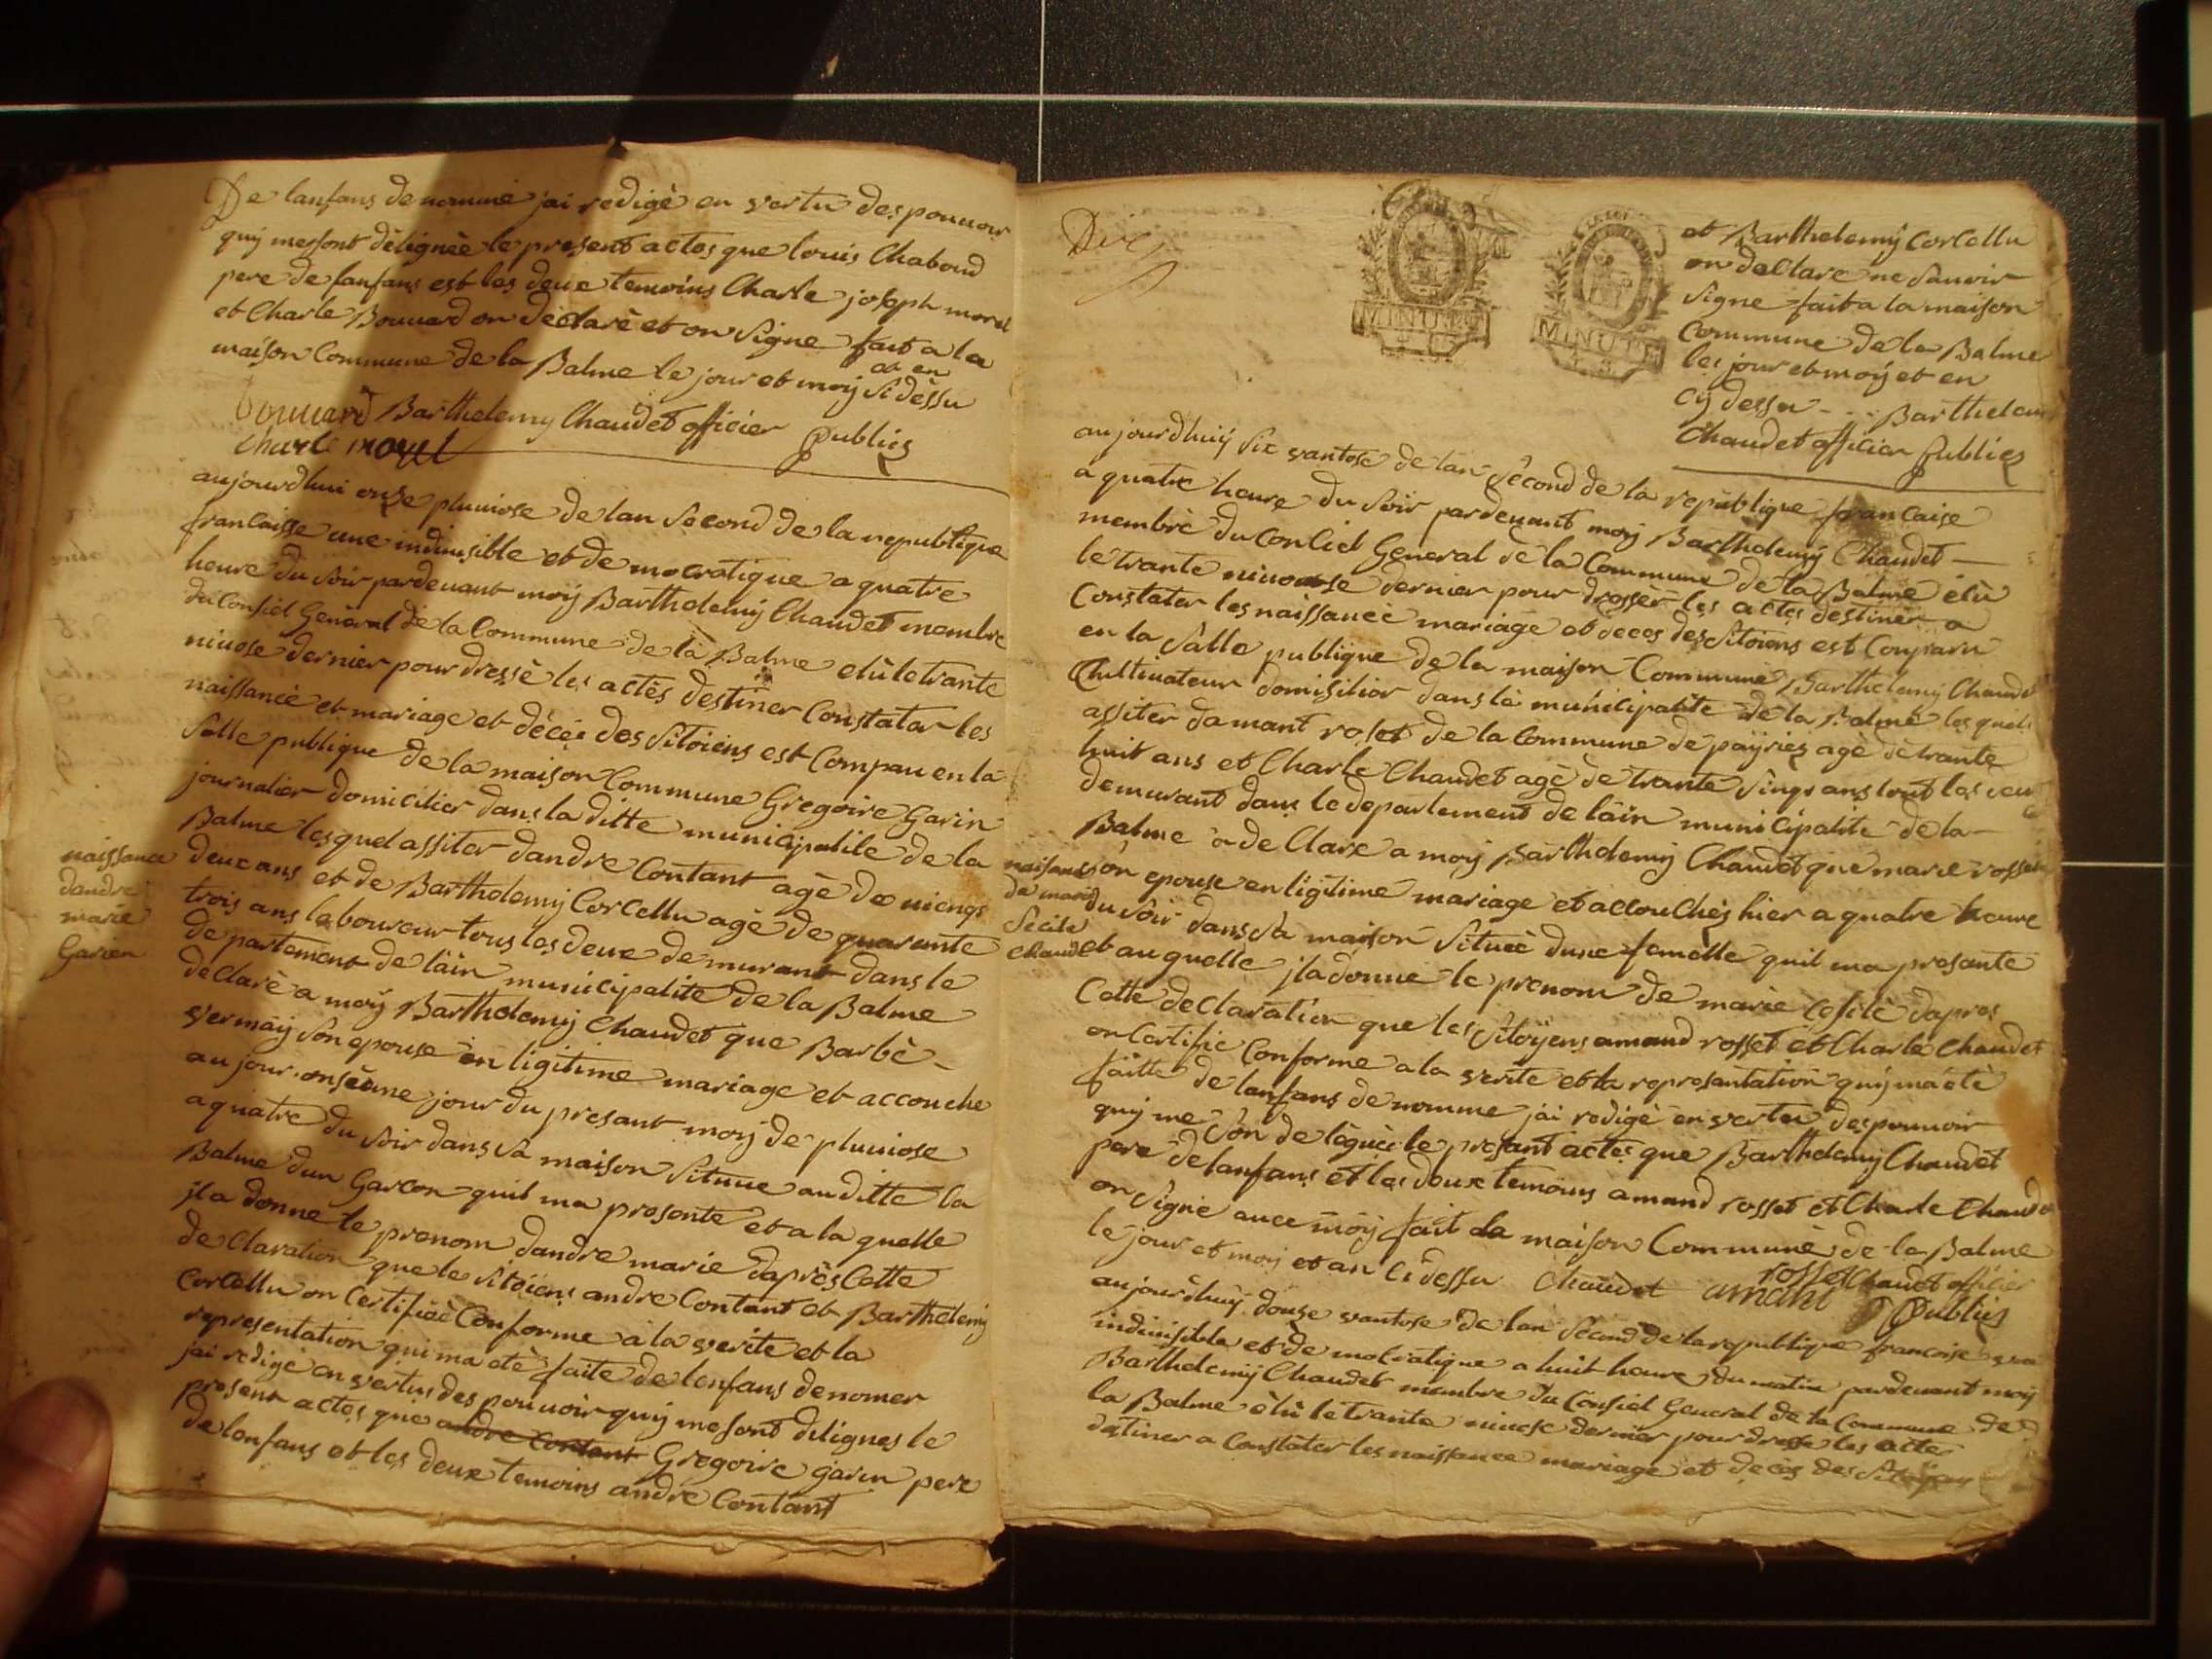 De lanfans denommé jai redigè en vertu des pouvoir
quy mesont dèlignèe le present actes que louis Chaboud
pere de lanfans est les deux temoins Charle joseph morel
et Charle Bouuard on dèclarè et on Signe fait a la
maison Commune de la Balme le jour et moy et en Si dèssu
bouuard Barthelemy Chaudet officier publics
Charle morel
aujourdhui onze pluuiose de lan Second de la republique
francaisse une indiuisible et de mocratique a quatre
heure du Soir pardeuant moy Barthelemy Chaudet membre
du Consiel Genèral de la Commune de la Balme elù le trante
niuose dernier pour dressè les actes destiner Constatar les
naissancèe et mariage et dècèe des Sitoiens est Compau en la
Salle publique de la maison Commune Gregoire Garin
journalier domicilier dans la ditte municipalite de la
Balme lesquel assiter dandre Contant agè de uiengt
deux ans et de Barthelemy Corcellu agè de quarante
trois ans laboureur tous les deux demurant dans le
departement de làin municipalite de la Balme
dèclarè a moy Barthelemy Chaudet que Barbè
vermay Son epouse en ligitime mariage et accouche
au jour onsème jour du presant moy de pluuiose
a quatre du Soir dans Sa maison Situue auditte la
Balme dun Garcon quil ma presente et a la quelle
jl a donne le prenom dandre marie daprès Cette
declaration que le Sitoiens andre Contant et Barthelemy
Corcellu on Certifièe Conforme a la verite et la
representation qui ma etè faite de lenfans denomer
jai redigè en vertus des pouuoir quy mesont dilignes le
present actes que andre Contant Gregoire garin pere
de lenfans et les deux temoins andre Contant
naissance
dandre
marie
Garien
Dix
MINUTE
MINUTE
et Barthelemy Corcellu
on declare ne Sauoir
Signe fait a la maison
Commune de la Balme
les jour et moy et en
cy dessu - - - Barthelemy
Chaudet officier publics
aujourdhuy Six vantose de lan Second de la republique francaise
a quatre heure du Soir pardeuant moy Barthelemy Chaudet
membre du Conciel General de la Commune de la Balme élù
le trante niuose dernier pour dressèr les actes destiner a
Constater les naissancèe mariage et dèces des Sitoiens est Conparu
en la Salle publique de la maison Commune Barthelemy Chaudet
Cultiuateur domisilier dans la municipalite de la Balme lesquels
assiter damant roset de la Commune de payries agè de trante
huit ans et Charle Chaudet agè de trante Sinqs ans tout les deux
demurant dans le departement de làin municipalite de la
Balme a declare a moy Barthelemy Chaudet que marie rosset
Son epouse en ligitime mariage et accouchès hier a quatre heure
du Soir dans Sa maison Situèe dune femelle quil ma presante
et au quelle jl a donne le prenom de marie Cesile dapres
Cette declaration que les Sitoyens amand rosset et Charle Chaudet
on Certifie Conforme a la verite et la representation quy ma etè
faitte de lanfans denomme jai redigè en vertu des pouuoir
quy me Son delèguèe le presant actes que Barthelemy Chaudet
pere de lanfans et les deux temoins amand rosset et Charle Chaudet
on Signe auec moy fait la maison Commune de la Balme
le jour et moy et an Ci dessu Chaudet amant rosset Chaudet officier
publics
naisance
de marie
Secile
Chaudet
aujourdhuy douze vantose de lan Second de la republique francoise une
indiuisible et de mocratique a huit heure du matin pardeuant moy
Barthelemy Chaudet membre du Consiel General de la Commune de
la Balme èlù le trante niuose dernier pour dresse les actes
destiner a Constater les naissance mariage et decès des Sitoyens